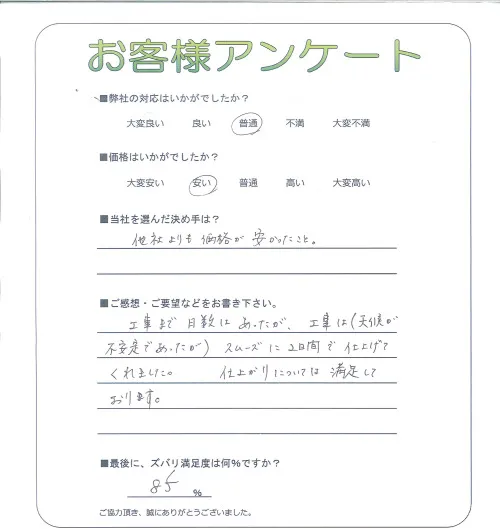 お客様アンケート
■弊社の対応はいかがでしたか？
大変良い 良い 普通 不満 大変不満
■価格はいかがでしたか？
大変安い 安い 普通 高い 大変高い
■当社を選んだ決め手は？
他社よりも価格が安かったこと。
■ご感想・ご要望などをお書き下さい。
工事まで日数はあったが、工事は(天候が
不安定であったが)スムーズに2日間で仕上げて
くれました。 仕上がりについては満足して
おります。
■最後に、ズバリ満足度は何%ですか？
85 %
ご協力頂き、誠にありがとうございました。